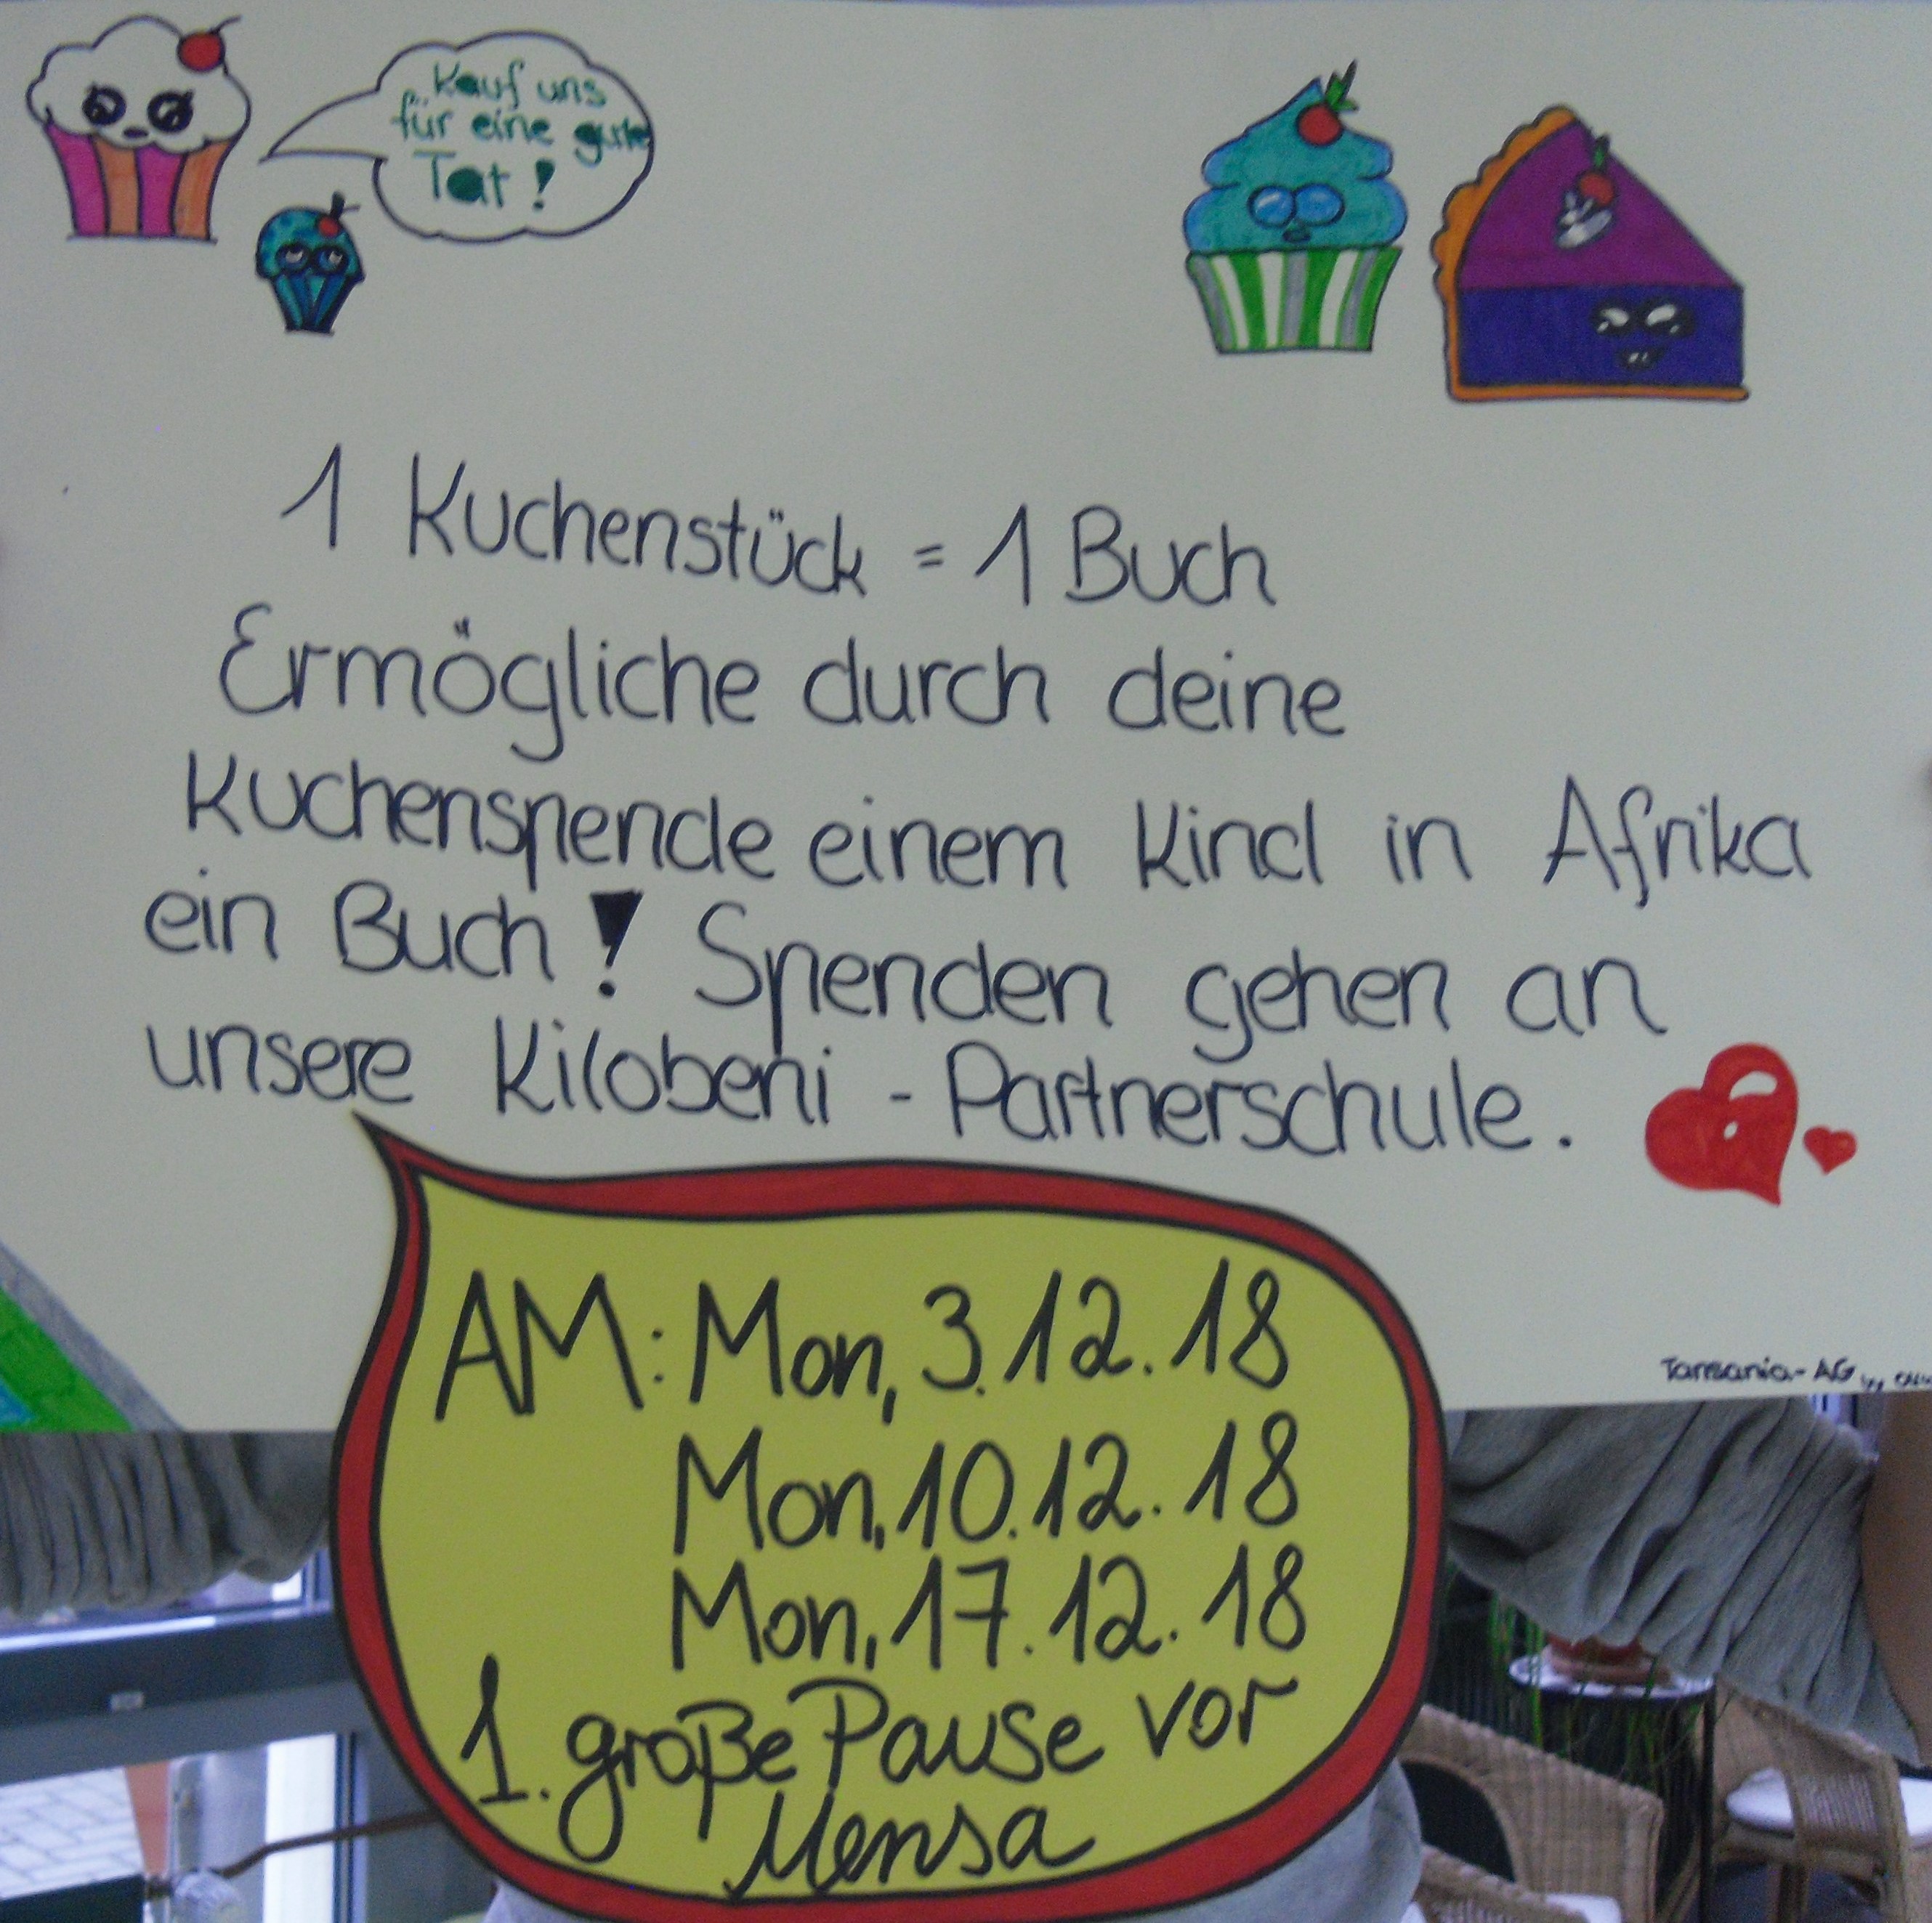 Kauf uns
für eine gute
Tat!
1 Kuchenstück = 1 Buch
Ermögliche durch deine
Kuchenspende einem Kind in Afrika
ein Buch! Spenden gehen an
unsere Kilobeni - Partnerschule.
Tansania-AG
AM: Mon, 3.12.18
Mon, 10.12.18
Mon, 17.12.18
1. große Pause vor
Mensa